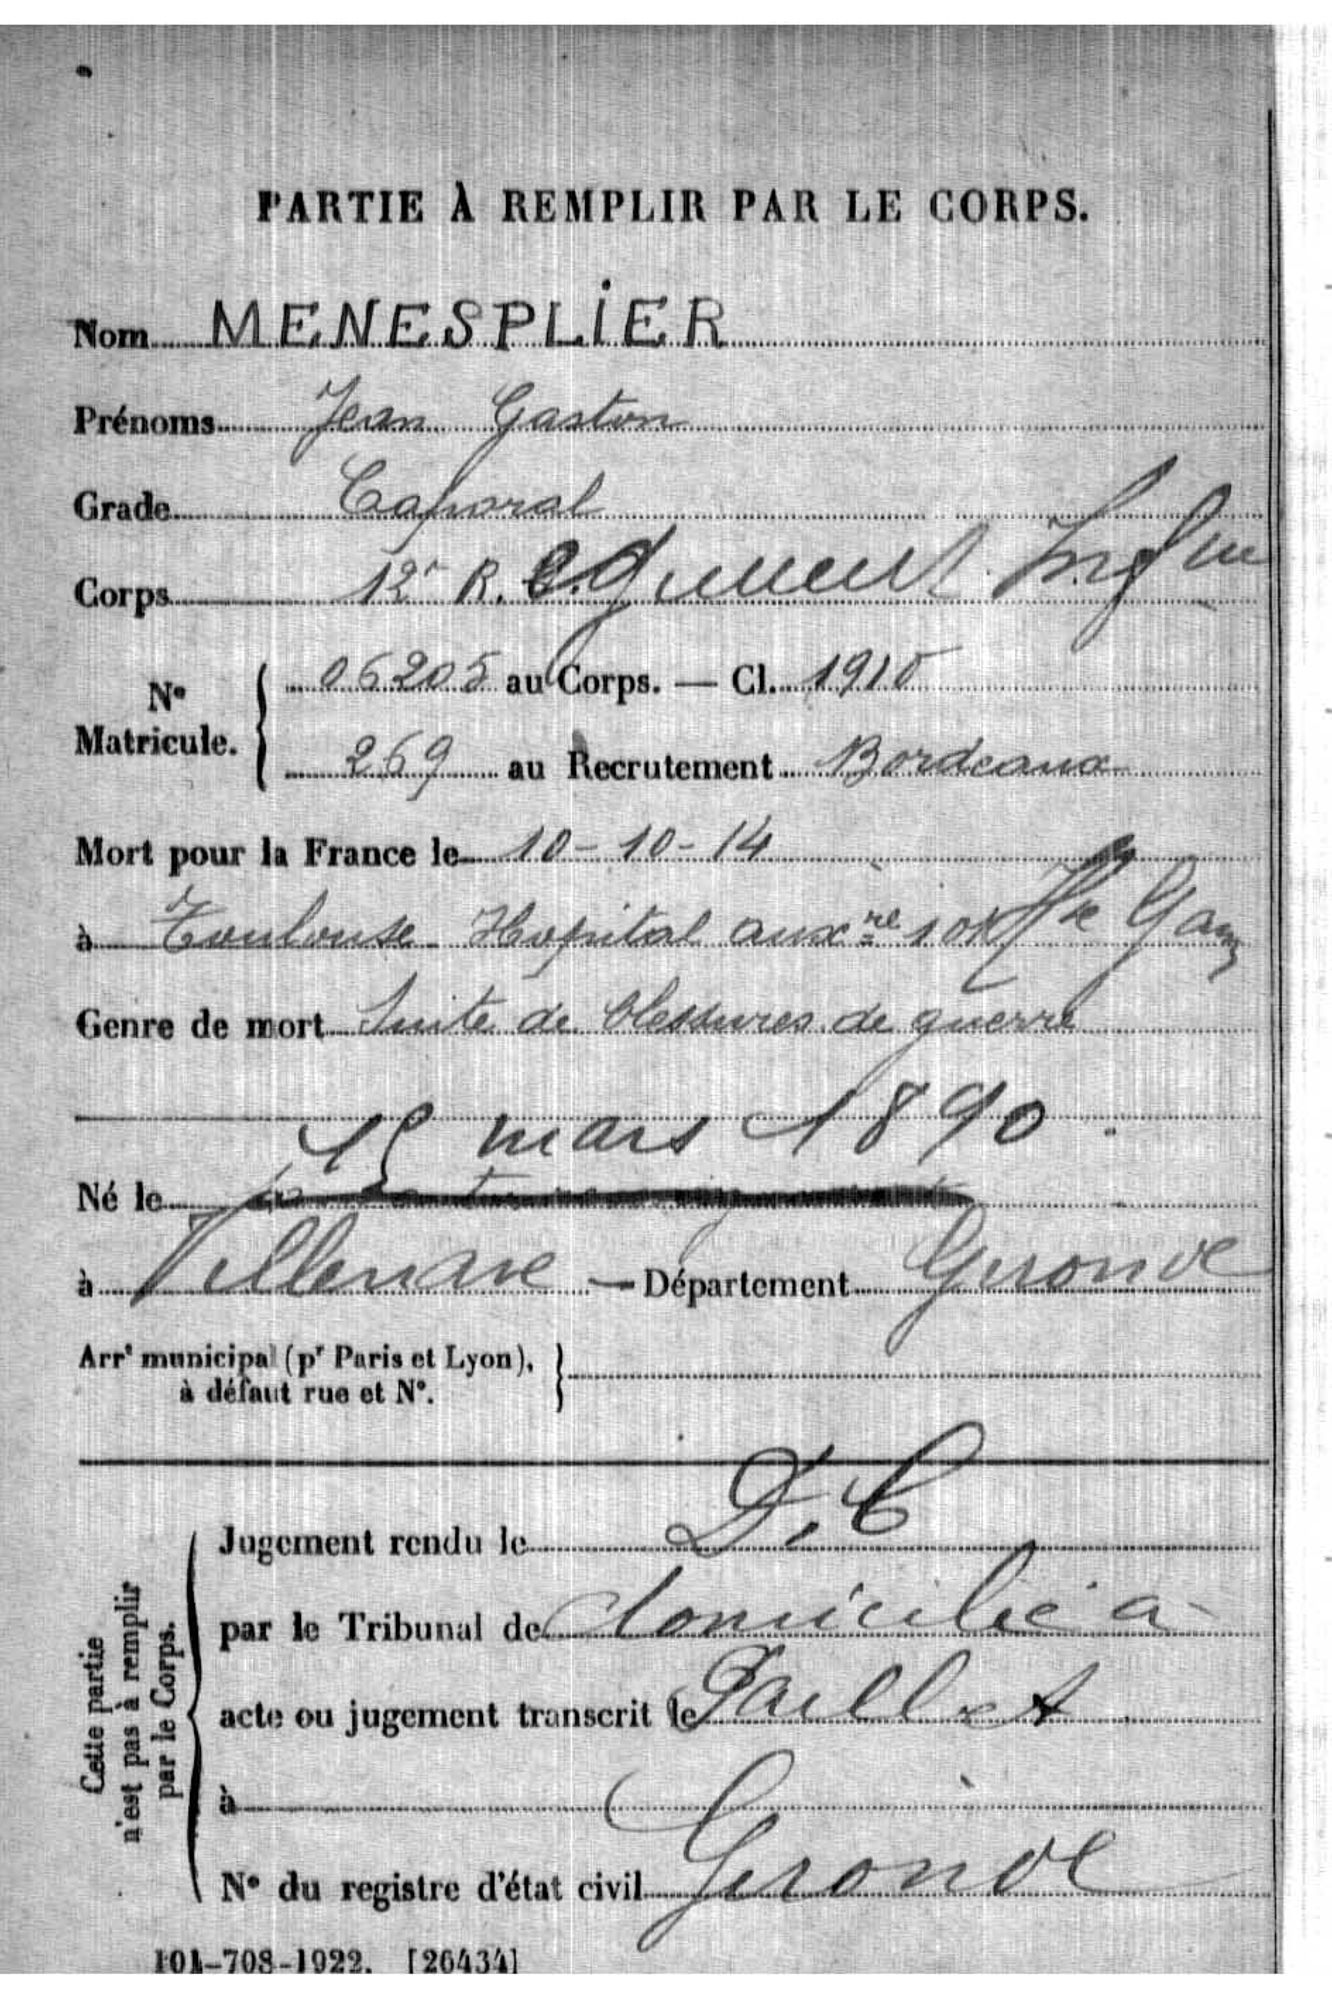 PARTIE À REMPLIR PAR LE CORPS.
Nom MENESPLIER
Prénoms Jean Gaston
Grade Caporal
Corps 12e R.egiment Infrie
No Matricule. { 06205 au Corps. — Cl. 1910
269 au Recrutement Bordeaux
Mort pour la France le 10-10-14
à Toulouse Hopital auxre Hte Gar
Genre de mort Suite de blessures de guerre
15 mars 1890
Né le
à Villenave — Département Gironde
Arrt municipal (pr Paris et Lyon),
à défaut rue et N°.
Cette partie
n'est pas à remplir
par le Corps.
Jugement rendu le D.C
par le Tribunal de domicilié à
acte ou jugement transcrit le Paillet
à
N° du registre d'état civil Gironde
101-708-1922. [26434]